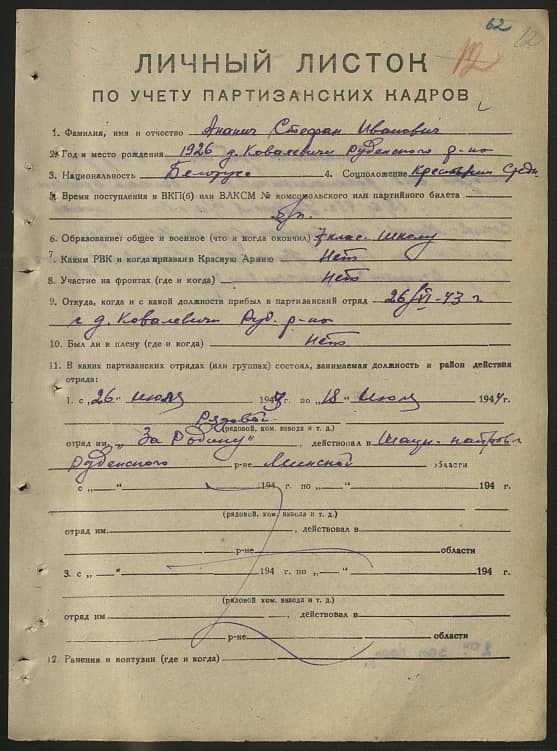 62
12
12
ЛИЧНЫЙ ЛИСТОК
ПО УЧЕТУ ПАРТИЗАНСКИХ КАДРОВ
1. Фамилия, имя и отчество Ананич Стефан Иванович
2. Год и место рождения 1926 д. Ковалевичи Руденского р-на
3. Национальность Белорус 4. Соцположение Крестьянин Средн.
5. Время поступления в ВКП(б) или ВЛКСМ № комсомольского или партийного билета
б/п.
6. Образование: общее и военное (что и когда окончил) 7 клас. школу
7. Каким РВК и когда призван в Красную Армию Нет
8. Участие на фронтах (где и когда) Нет
9. Откуда, когда и с какой должности прибыл в партизанский отряд 26/VI-43 г
с д. Ковалевичи Руд. р-на
10. Был ли в плену (где и когда) Нет
11. В каких партизанских отрядах (или группах) состоял, занимаемая должность и район действия
отряда:
1. с „26" июля 1943 г. по „18" июля 1944 г.
Рядовой
(рядовой, ком. взвода и т. д.)
отряд им. „За Родину" , действовал в
Руденского р-не Минской области
с „ " 194 г. по „ " 194 г.
(рядовой, ком. взвода и т. д.)
отряд им. , действовал в
р-не области
3. с „ " 194 г. по „ " 194 г.
(рядовой, ком. взвода и т. д.)
отряд им , действовал в
р-не области
12. Ранения и контузии (где и когда)